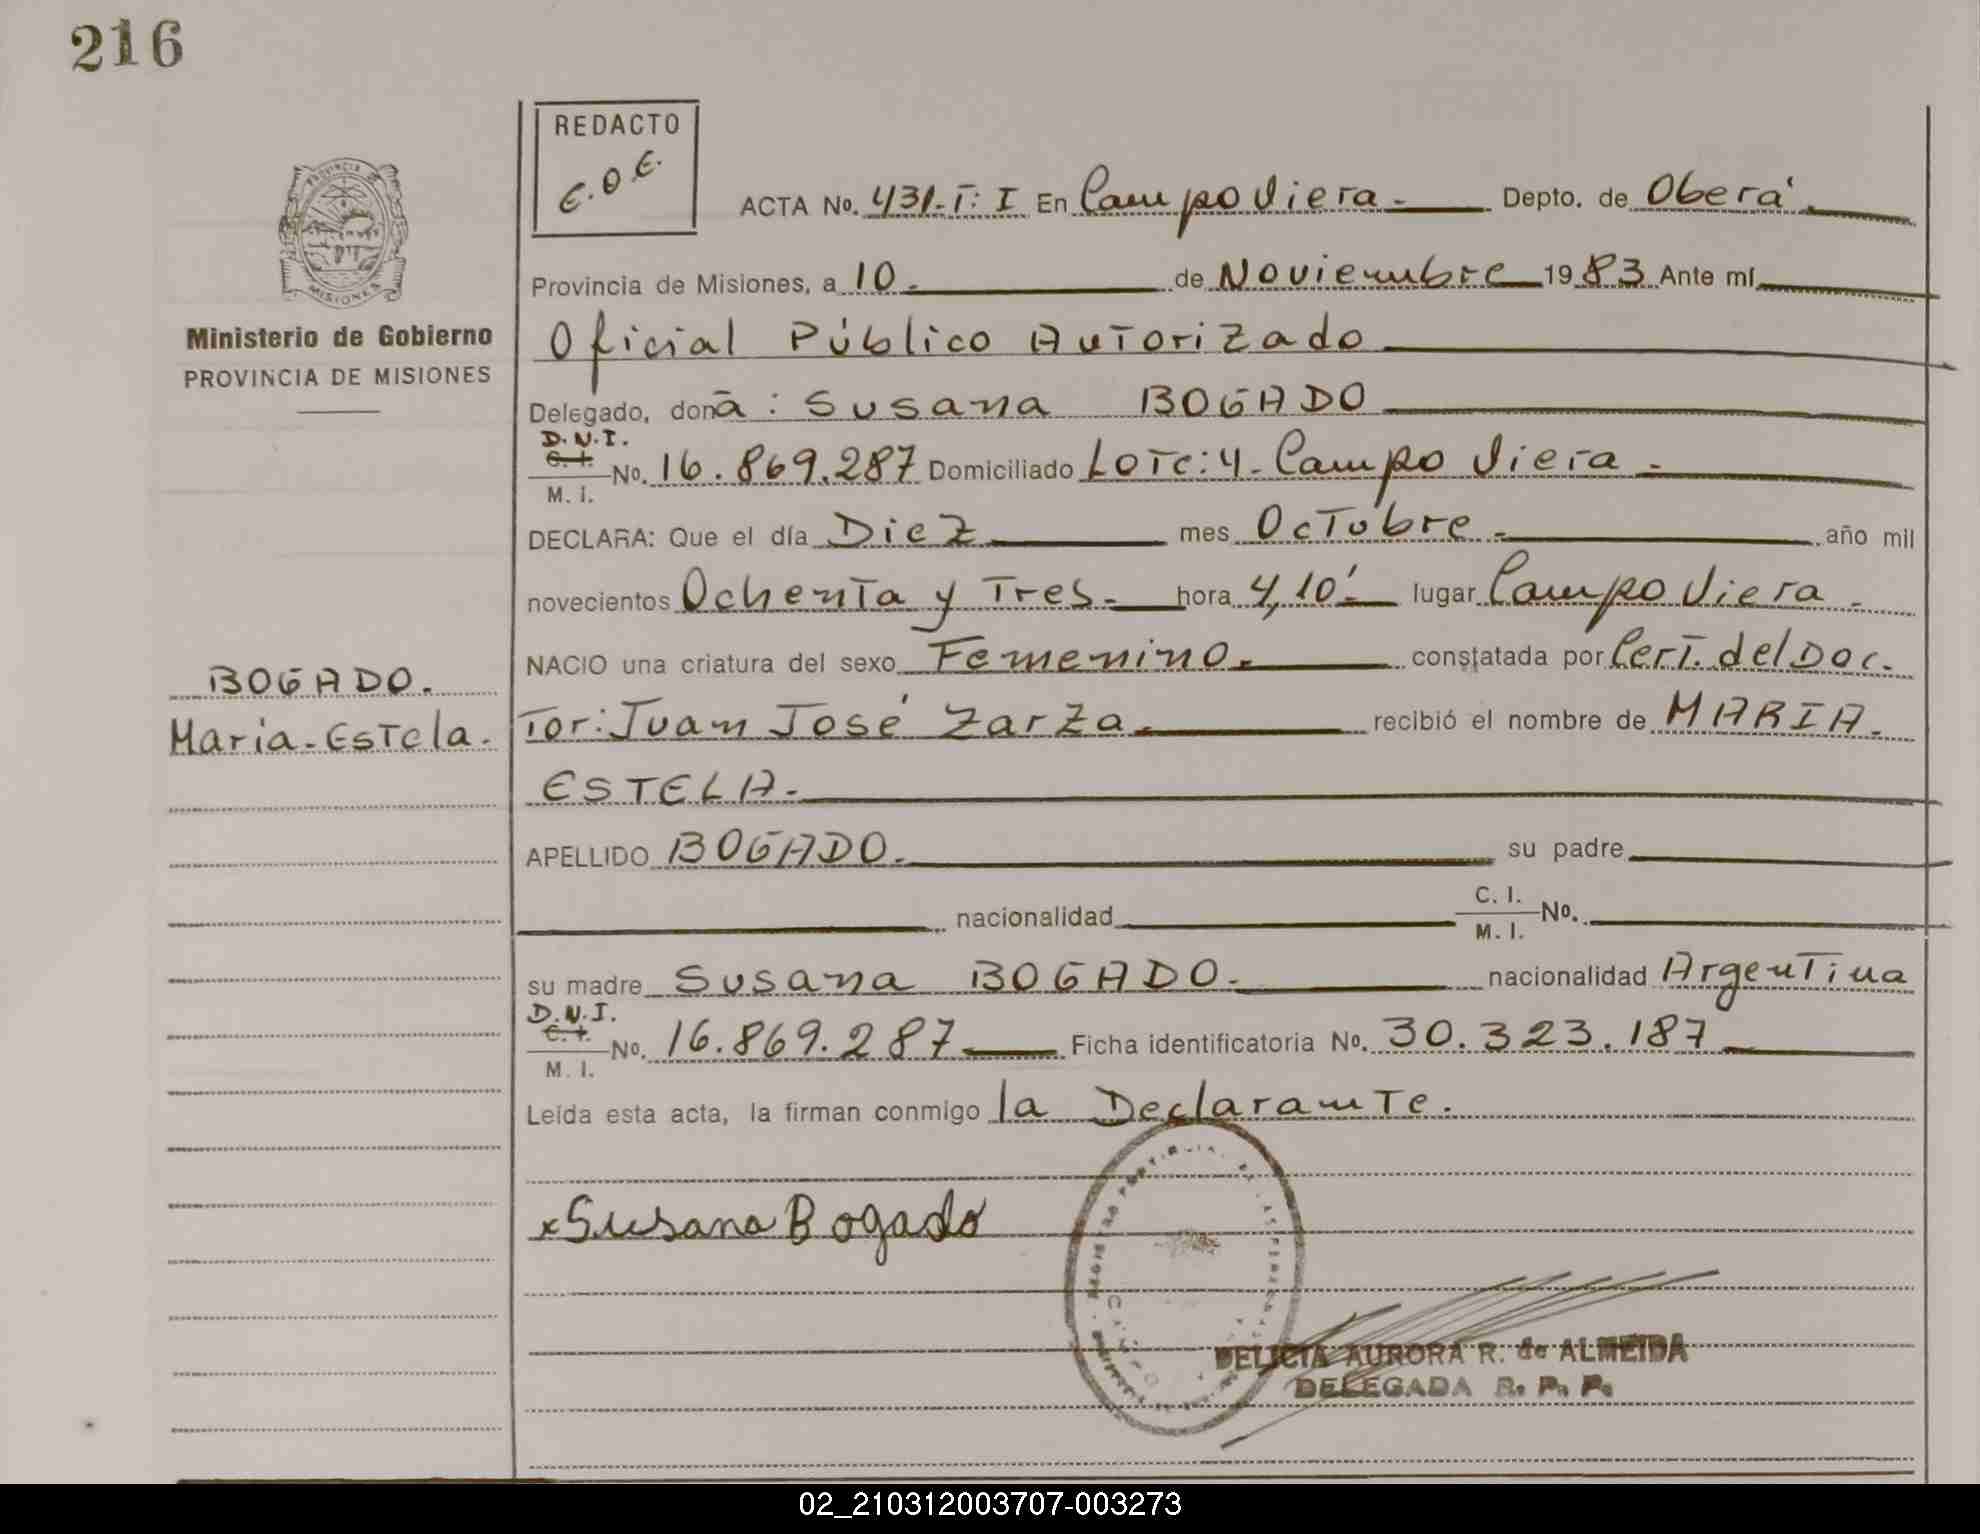 216
REDACTO
E.O.E.
ACTA No. 431-T: I En Campo Viera.- Depto. de Oberá.
PROVINCIA
MISIONES
Provincia de Misiones, a 10. de Noviembre 1983 Ante mí
Ministerio de Gobierno
PROVINCIA DE MISIONES
Oficial Público Autorizado
Delegado, doña: Susana BOGADO
D.N.I.
C. I.
M. I. No. 16.869.287 Domiciliado Lote: 4 - Campo Viera -
DECLARA: Que el día Diez mes Octubre.- año mil
novecientos Ochenta y Tres.- hora 4,10'- lugar Campo Viera -
NACIO una criatura del sexo Femenino. constatada por Cert. del Doc.
BOGADO.
Maria-Estela.
tor: Juan José Zarza. recibió el nombre de MARIA.
ESTELA.-
APELLIDO BOGADO. su padre
nacionalidad C. I.
M. I. No.
su madre Susana BOGADO. nacionalidad Argentina
D.N.I.
C. I.
M. I. No. 16.869.287 Ficha identificatoria No. 30.323.187
Leída esta acta, la firman conmigo la Declarante.
x Susana Bogado
DELICIA AURORA R. de ALMEIDA
DELEGADA R. P. P.
02_210312003707-003273